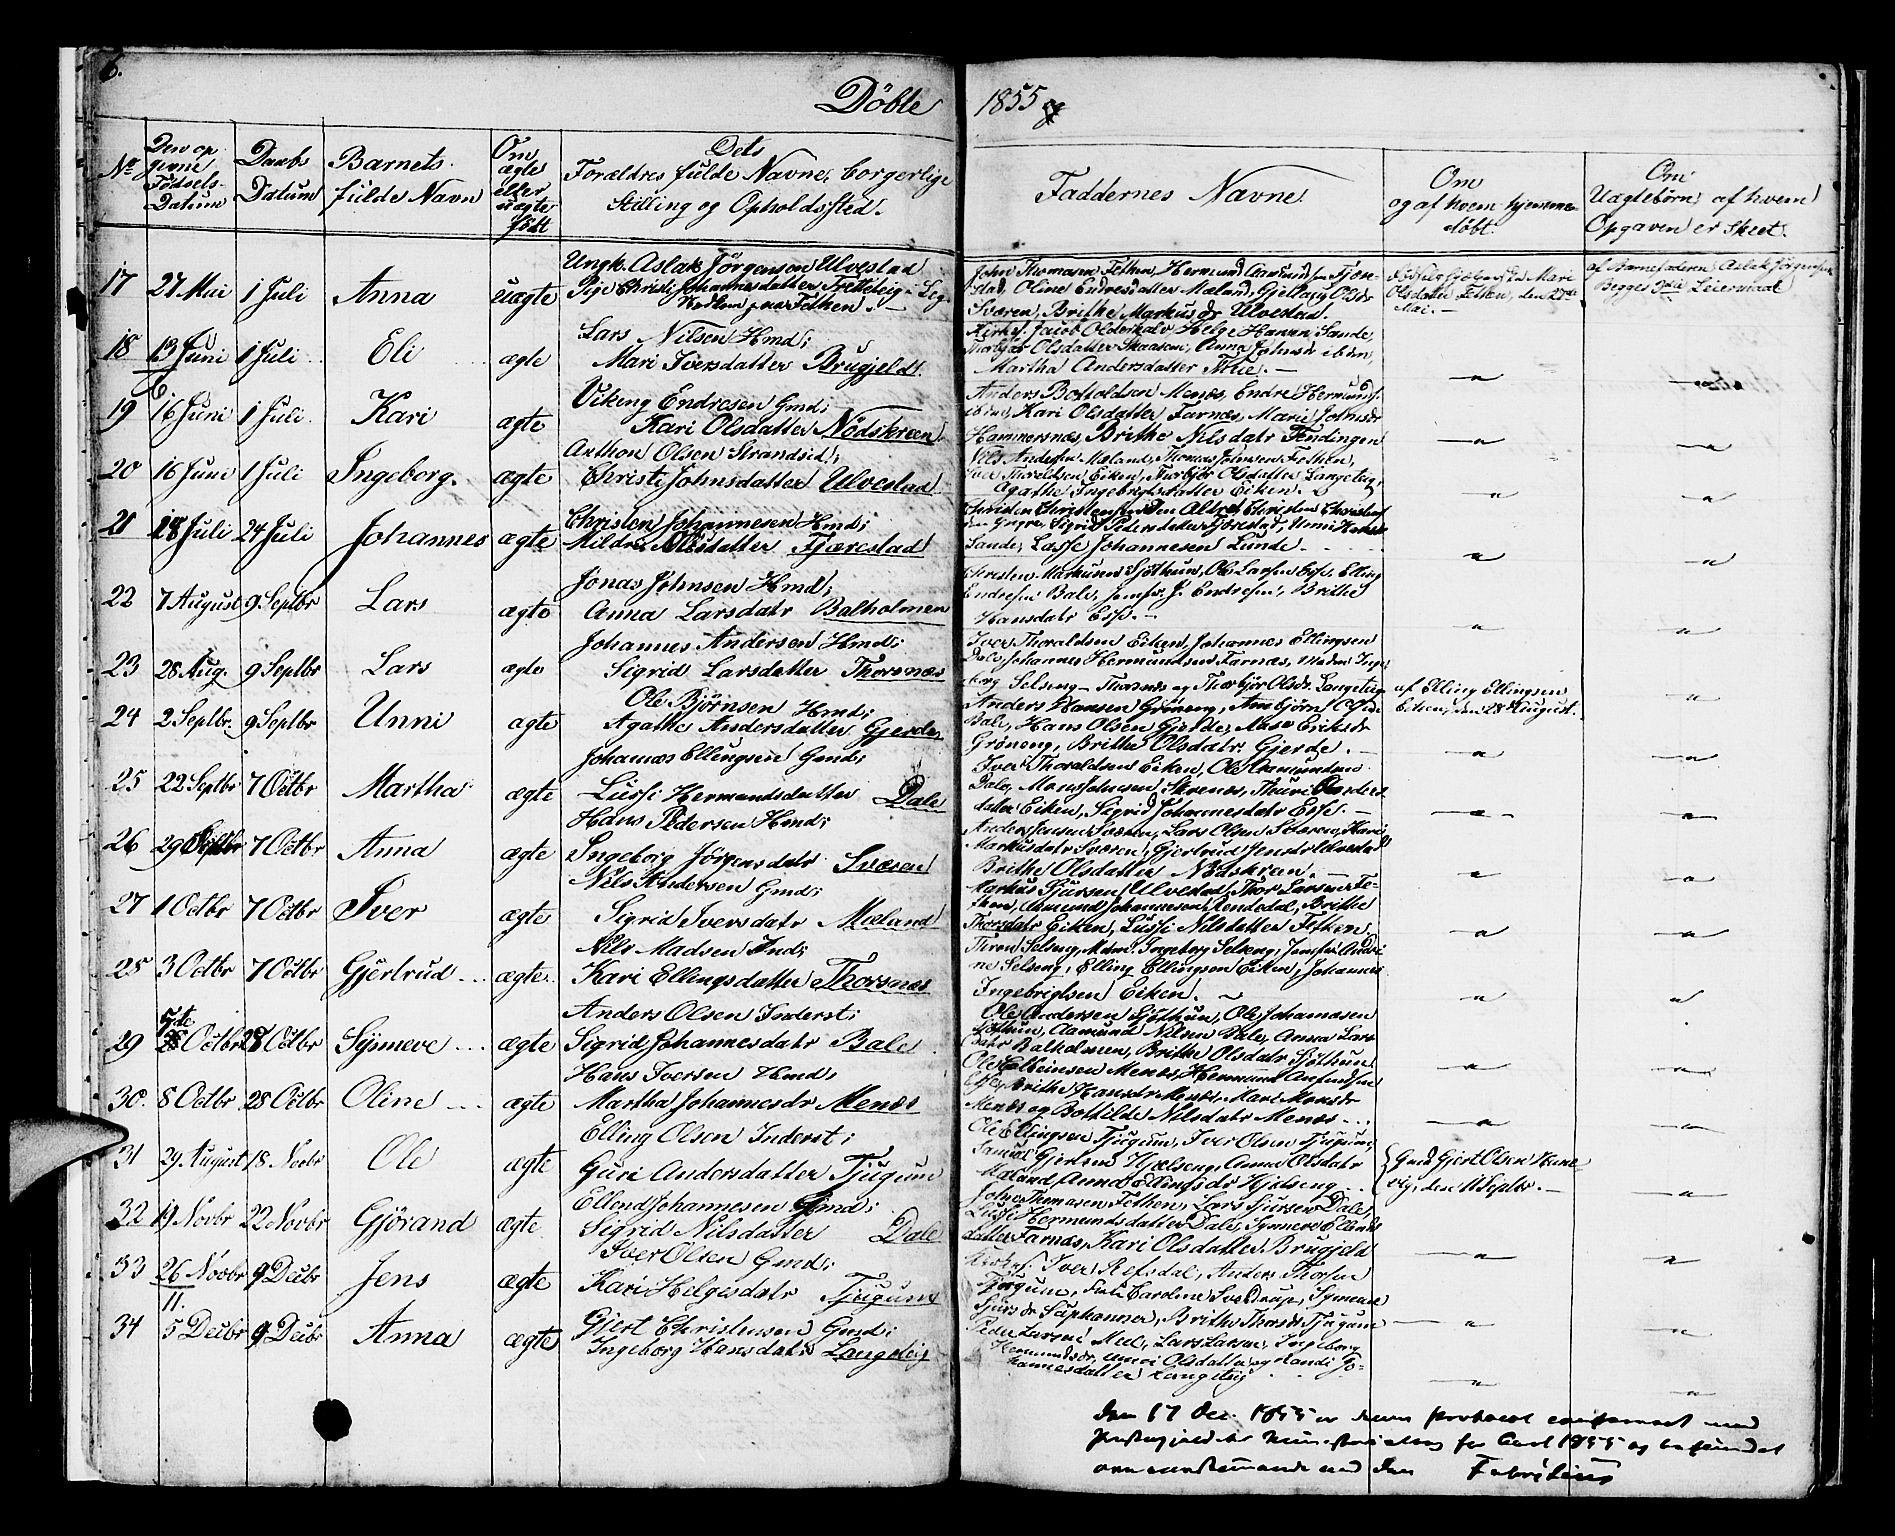 6.
Döbte
1855
No
Den op
givne
Födsels-
Datum
Daabs
Datum
Barnets
fulde Navn
Om
ægte
eller
uægte
födt
Dets
Forældres fulde Navne, borgerlige
Stilling og Opholdssted.
Faddernes Navne
Om
og af hvem hjemme
döbt.
Om
Uægtebörn af hvem
Opgaven er skeet.
17 27 Mai 1 Juli Anna uægte
Ungk. Aslak Jörgensen Ulvestad
Pige Christi Johannesdatter
John Thomasen Fethen, Hermund
stad, Oline Endresdatter Mæland, Gjellaug Olsdr
Sværen, Brithe Markusdr Ulvestad.
Olsdatter Fethen, den 27de
Mai.
af Barnefaderen, Aslak Jörgensen
Begges Leiermaal
18 13 Juni 1 Juli Eli ægte
Lars Nilsen Hmd;
Mari Iversdatter Brugjeld.
Kirkes. Jacob Olderhalv Helge Hansen Sande,
Thorbjör Olsdatter Anna Johnsdr ibdm,
Martha Andersdatter
19 16 Juni 1 Juli Kari ægte
Viking Endresen Gmd;
Kari Olsdatter Nödskreen.
Anders Botholdsen Menes, Endre Hermunds.
ibdm, Kari Olsdatter Farnæs, Mari Johnsdr
Hammersnæs, Brithe Nilsdatr Tendingen
20 16 Juni 1 Juli Ingeborg. ægte
Anthon Olsen Strandsid;
Christi Johnsdatter Ulvestad
Nils Andersen Mæland, Thomas Johnsen Fethen,
Thoraldsen Eiken, Thorbjör Olsdatter Langeteig,
Agathe Ingebrigtsdatter Eiken.
21 18 Juli 24 Juli Johannes ægte
Christen Johannesen Hmd;
Mildrid Olsdatter Fjærestad
Christen Christensen den Ældre, Christen Christens
den Yngre, Sigrid Pedersdatter Fjærestad, Unni
Sande, Lasse Johannesen Lunde.
22 7 August 9 Septbr Lars ægte
Jonas Johnsen Hmd;
Anna Larsdatr Balholmen
Christen Markusen Sjöthun, Ole Larsen Esse, Elling
Endresen Bale, Jomfr. J. Endresen, Brithe
Hansdatr Esse.
23 28 Aug. 9 Septbr Lars ægte
Johannes Andersen Hmd;
Sigrid Larsdatter Thorsnæs
Iver Thoraldsen Eiken, Johannes Ellingsen
Dale, Johannes Hermundsen Farnæs, Madm Inge
borg Selseng Thorsnæs og Thorbjör Olsdr. Langeteig
af Elling Ellingsen
Eiken, den 28 August.
24 2 Septbr. 9 Septbr Unni ægte
Ole Björnsen Hmd;
Agathe Andersdatter Gjerde,
Anders Hansen Gröneng, Arnbjörn
Bale, Hans Olsen Gjelde, Eriksdr
Gröneng, Brithe Olsdatr. Gjerde.
25 22 Septbr 7 Octbr Martha ægte
Johannes Ellingsen Gmd;
Lussi Hermundsdatter Dale
Iver Thoraldsen Eiken, Ole Aamundsen
Dale, Mons Johnsen Thuri
datter Eiken, Sigrid Johannesdatr Esse.
26 29 Septbr 7 Octbr Anna ægte
Hans Pedersen Hmd;
Ingeborg Jörgensdatr. Sværen
Anders Jensen Sværen, Lars Olsen Sværen, Kari
Markusdatr Sværen, Gjertrud Jensdr Ulvestad
Brithe Olsdatter Nödskreen.
27 1 Octbr 7 Octbr Iver ægte
Nils Andersen Gmd;
Sigrid Iversdatr Mæland
Markus Sjursen Ulvestad, Thor Larsen Fe-
then, Aamund Johannesen Rendedal, Brithe
Thorsdatr Eiken, Lussi Nilsdatter Fethen.
28 3 Octbr 7 Octbr Gjertrud ægte
Nils Madsen Ind;
Kari Ellingsdatter Thorsnæs
Selseng, Mdm. Ingeborg Selseng, Jomfr. Andri
ne Selseng, Elling Ellingsen Eiken, Johannes
Ingebrigtsen Eiken.
29 5te Octbr 28 Octbr Synneve ægte
Anders Olsen Inderst;
Sigrid Johannesdatr Bale
Ole Andersen Sjöthun, Ole Johannesen
Sjöthun, Aamund Nilsen Bale, Anna Lars
datr Balholmen, Brithe Olsdatr Sjöthun.
30. 8 Octbr 28 Octbr Oline ægte
Hans Iversen Hmd;
Martha Johannesdr Menes
Ole Menes, Hermund
Esse, Brithe Hansdr Menes, Mari Monsdr
Menes og Bothilde Nilsdatr Menes
31 29 August 18 Novbr Ole ægte
Elling Olsen Inderst;
Guri Andersdatter Tjugum
Ole Ellingsen Tjugum, Iver Olsen Tjugum,
Samuel Gjertsen Hjelseng, Anna Olsdatr
Mæland, Anna Ellingsdr Hjelseng
Gmd Gjert Olsen Hene
vig, den 11 Septbr.
32 19 Novbr 22 Novbr Gjörand ægte
Ellend Johannesen Gmd;
Sigrid Nilsdatter Dale
John Thomasen Fethen, Lars Sjursen Dale,
Lussi Hermundsdatter Dale, Synneve Ellends
datter Farnæs, Kari Olsdatter Brugjeld
33 26/11. Novbr 9 Decbr Jens ægte
Iver Olsen Gmd;
Kari Helgesdatr Tjugum
Kirkes. Iver Refsdal, Anders Thorsen
Tjugum, Cardine Sverdrup, Synneve
Sjursdr Brithe Thorsdr Tjugum
34 5 Decbr 9 Decbr Anna ægte
Gjert Christensen Gmd;
Ingeborg Hansdatr Langeteig
Peder Larsen Lars Larsen Ingeborg
Hermundsdr, Olsdatter og Randi Jo-
hannesdatter Langeteig
Den 17 Dec. 1855 er denne protocol confereret med
Præstegjeldets Ministerialbog for Aaret 1855 og befundet
overensstemmende med den Fabritius